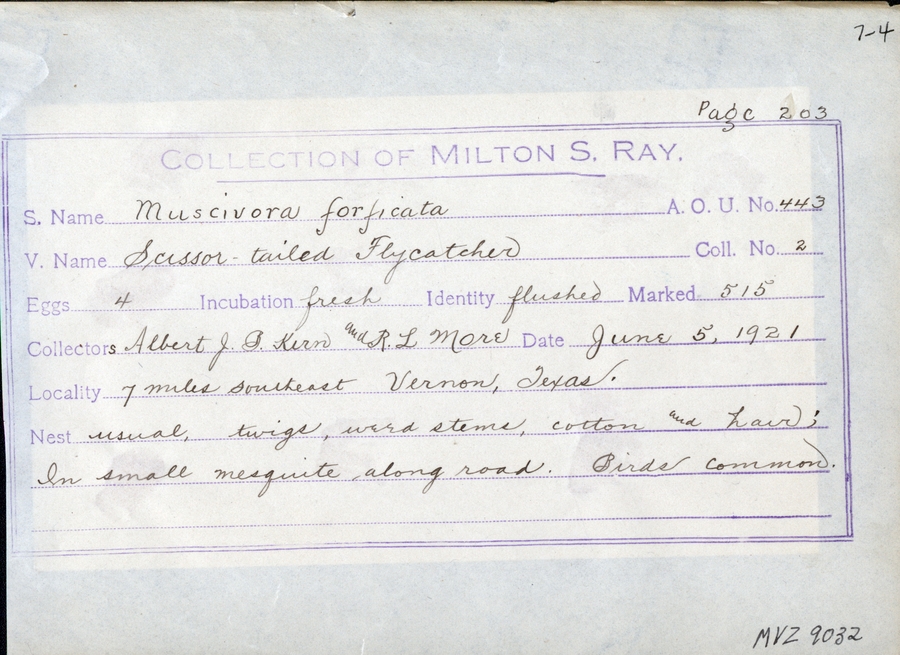 7-4
Page 203
COLLECTION OF MILTON S. RAY.
S. Name Muscivora forficata A. O. U. No. 443
V. Name Scissor-tailed Flycatcher Coll. No. 2
Eggs 4 Incubation fresh Identity flushed Marked 515
Collectors Albert J. B. Kirn and R L More Date June 5, 1921
Locality 7 miles southeast Vernon, Texas.
Nest usual, twigs, weed stems, cotton and hair;
In small mesquite along road. Birds common.
MVZ 9032